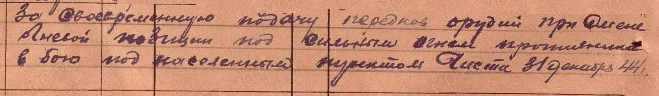 За своевременную подачу передков орудий при смене
огневой позиции под сильным огнем противника
в бою под населенным пунктом Чиста 31 декабря 44г.